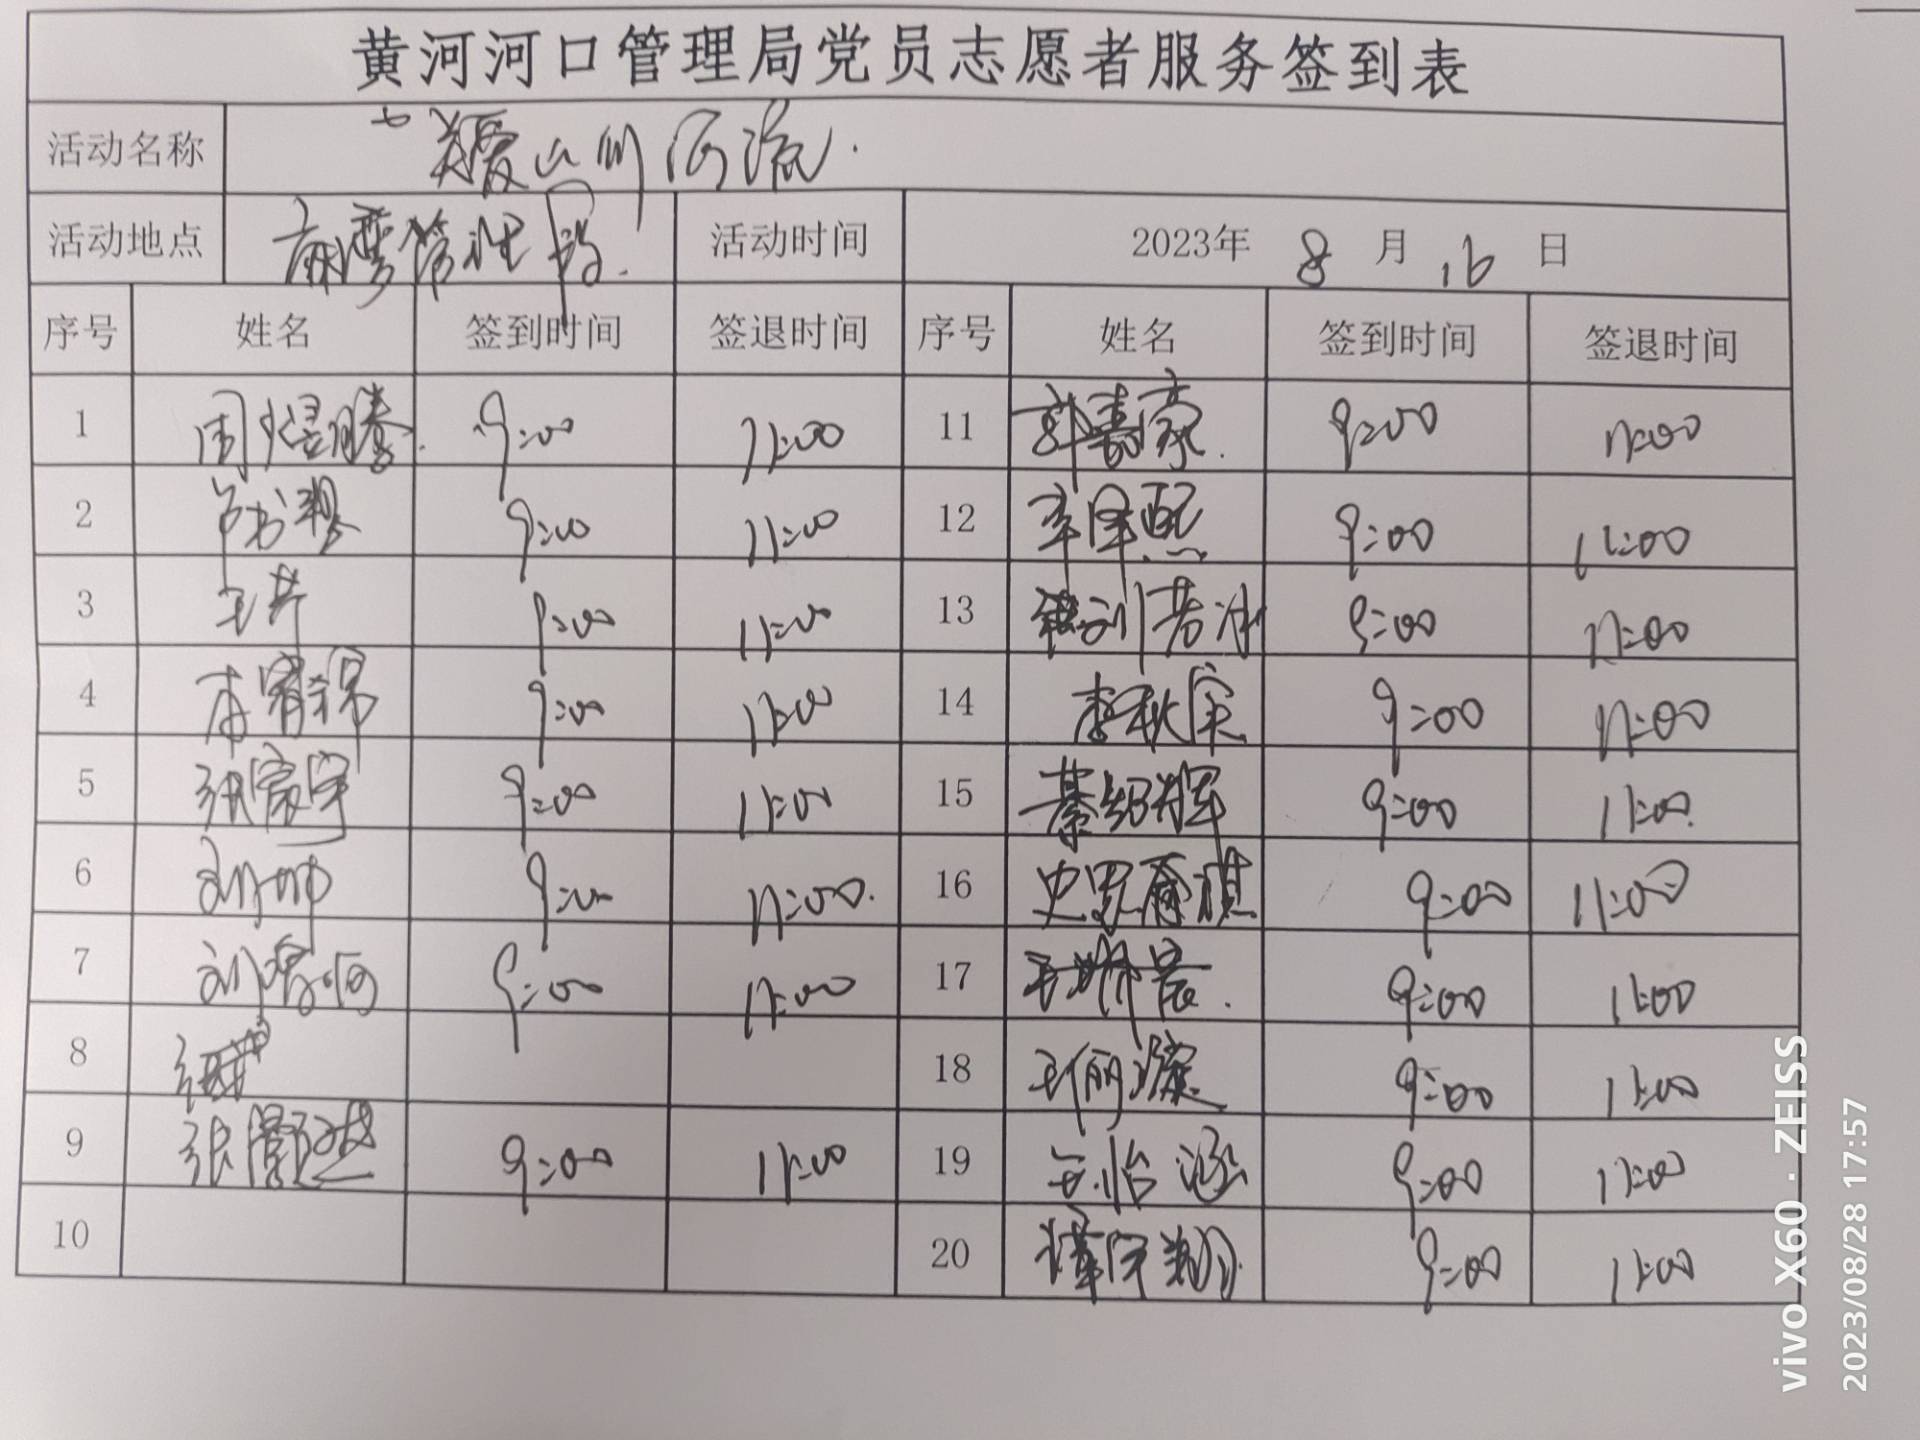 黄河河口管理局党员志愿者服务签到表
活动名称 关爱山川河流.
活动地点 麻湾管理段. 活动时间 2023年 8 月 16 日
序号 姓名 签到时间 签退时间 序号 姓名 签到时间 签退时间
1 周煜腾. 9:00 11:00 11 郭嘉豪. 9:00 11:00
2 9:00 11:00 12 李泽熙 9:00 11:00
3 9:00 11:00 13 9:00 11:00
4 9:00 11:00 14 李秋实 9:00 11:00
5 张家宇 9:00 11:00 15 綦绍辉 9:00 11:00.
6 刘坤 9:00 11:00. 16 9:00 11:00
7 9:00 11:00 17 9:00 11:00
8 18 9:00 11:00
9 张 9:00 11:00 19 王怡涵 9:00 11:00
10 20 谭宇翔 9:00 11:00
vivo X60 · ZEISS
2023/08/28 17:57